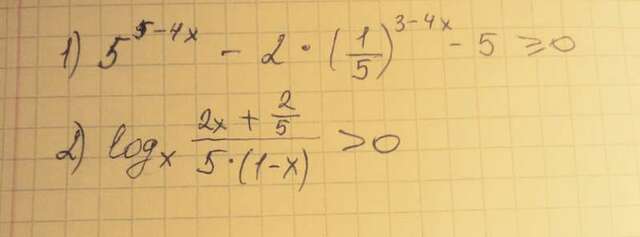 1) 5^{5-4x} - 2 · (1/5)^{3-4x} - 5 ≥ 0
2) log_x (2x + 2/5)/(5·(1-x)) > 0